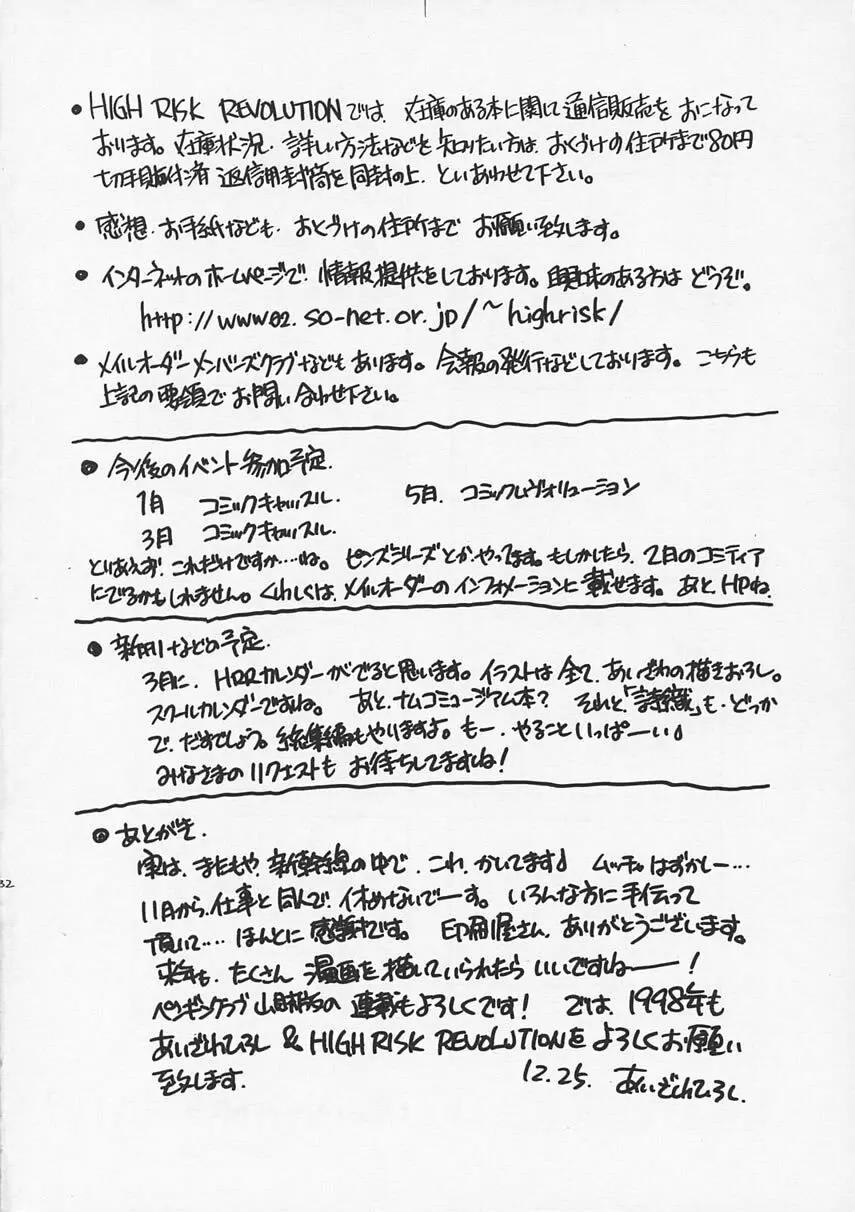 • HIGH RISK REVOLUTIONでは、在庫のある本に関して通信販売をおこなって
おります。在庫状況、詳しい方法などを知りたい方は、おくづけの住所まで80円
切手貼付済返信用封筒を同封の上、といあわせて下さい。
• 感想、お手紙なども、おくづけの住所までお願い致します。
• インターネットのホームページで情報提供をしております。興味のある方はどうぞ。
http://www02.so-net.or.jp/~highrisk/
• メイルオーダーメンバーズクラブなどもあります。会報の発行などしております。こちらも
上記の要領でお問い合わせ下さい。
• 今後のイベント参加予定.
1月 コミックキャッスル. 5月. コミックレヴォリューション
3月 コミックキャッスル.
といあえず、これだけですか……ね。ピンズシリーズとか、やってます。もしかしたら、2月のコミティア
にでるかもしれません。くわしくは、メイルオーダーのインフォメーションに載せます。あと、HPね.
• 新刊などの予定.
3月に、HRRカレンダーがでると思います。イラストは全て、あいざわの描きおろし。
スクールカレンダーですね。あと、ナムコミュージアム本? それと、「詩織」も、どっか
で、だすでしょう。総集編もやりますよ。もー、やることいっぱーい♪
みなさまのリクエストもお待ちしてますね!
• あとがき.
実は、またもや、新幹線の中で、これ、かいてます♪ ムッチャはずかしー…
11月から、仕事と同人で、休めないでーす。いろんな方に手伝って
頂いて…. ほんとに感謝です。印刷屋さん、ありがとうございます。
来年も、たくさん漫画を描いていられたらいいですねー!
ペンギンクラブ山賊版の連載もよろしくです! では、1998年も
あいざわひろし & HIGH RISK REVOLUTIONをよろしくお願い
致します.
12.25. あいざわひろし.
32